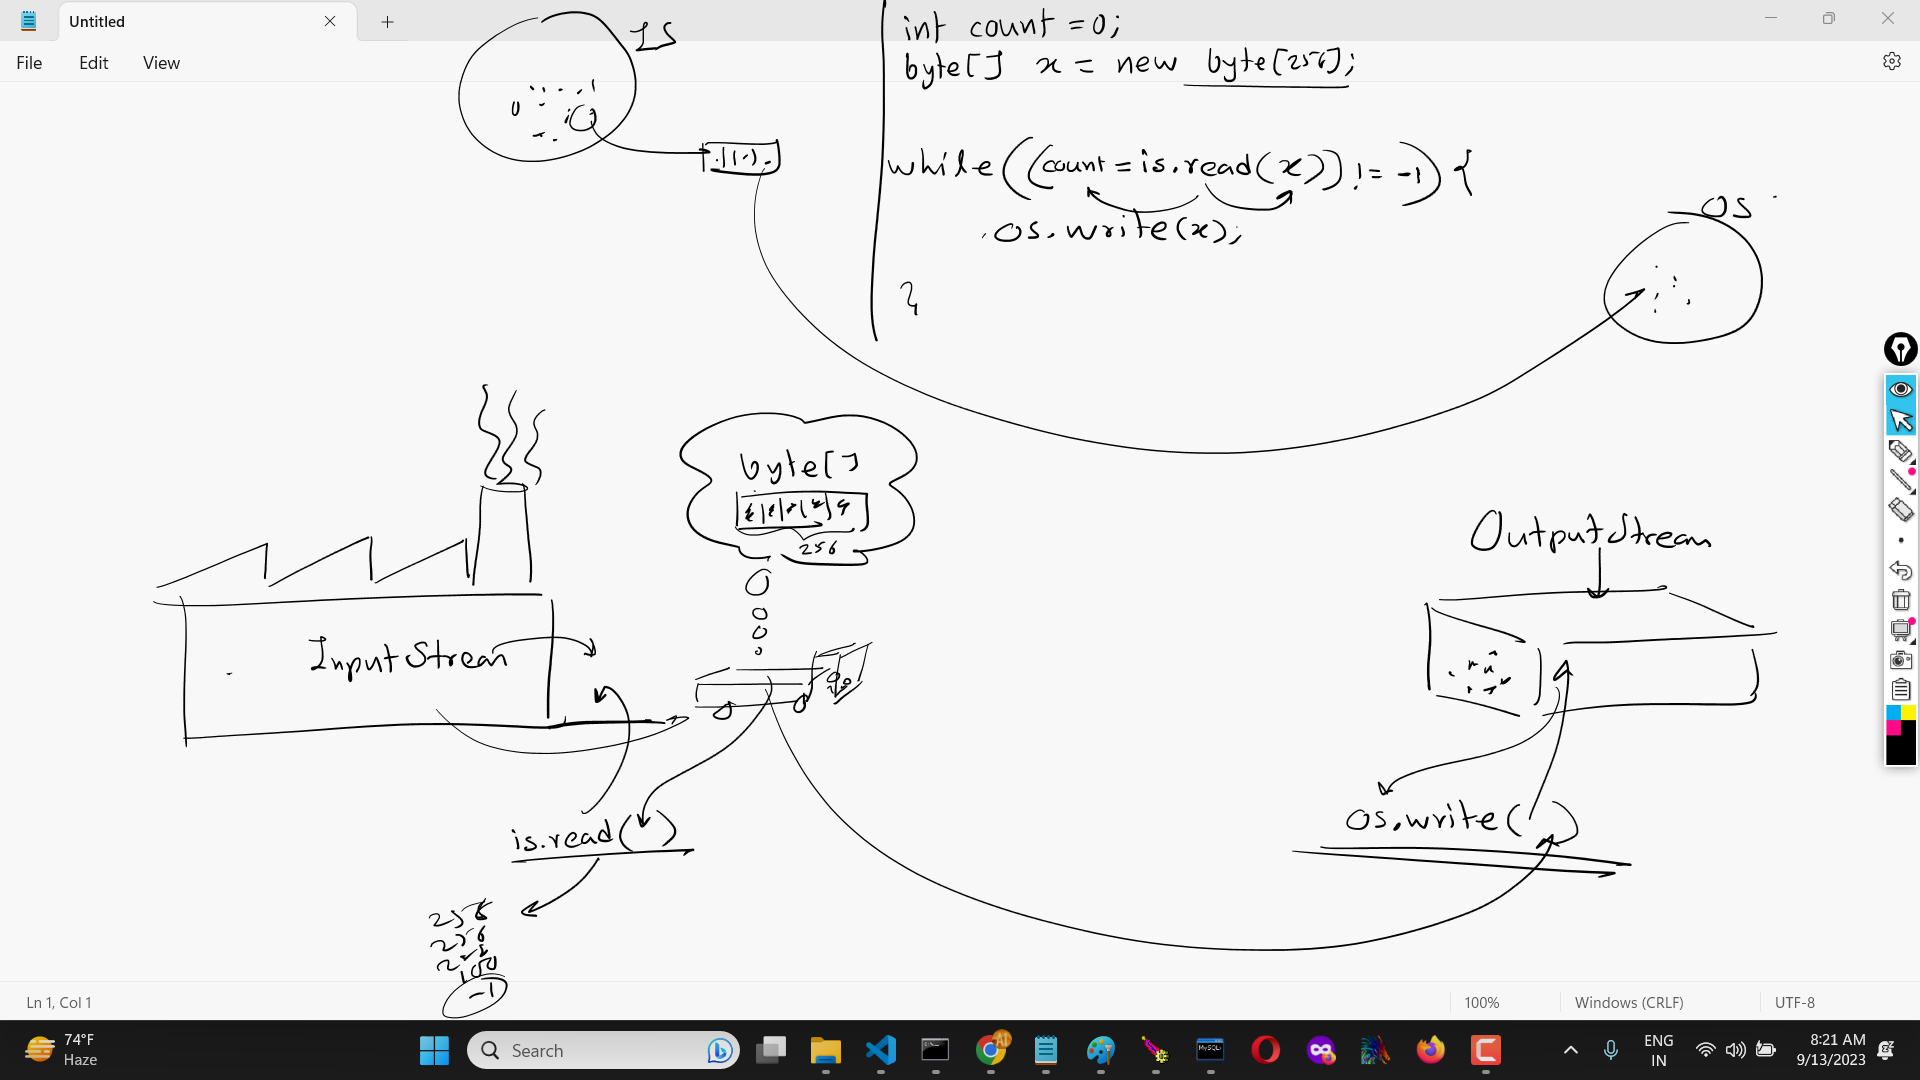 Untitled
File Edit View
IS
int count = 0;
byte[] x = new byte[256];
while((count = is.read(x)) != -1) {
os.write(x);
}
OS
byte[]
256
InputStream
OutputStream
is.read( )
os.write( )
256
256
256
100
-1
Ln 1, Col 1
100%
Windows (CRLF)
UTF-8
74°F
Haze
Search
ENG
IN
8:21 AM
9/13/2023